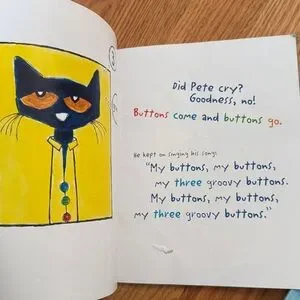 Did Pete cry?
Goodness, no!
Buttons come and buttons go.
He kept on singing his song:
"My buttons, my buttons,
my three groovy buttons.
My buttons, my buttons,
my three groovy buttons."